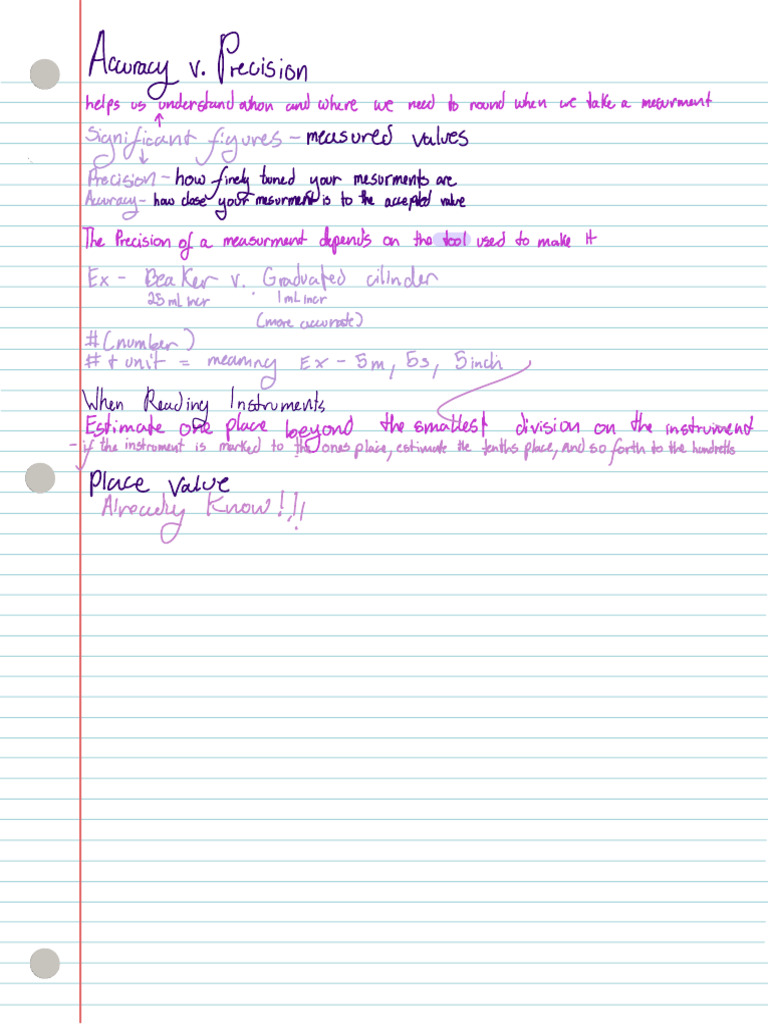 Accuracy v. Precision
helps us understand when and where we need to round when we take a mesurment
Significant figures - measured values
Precision - how finely tuned your mesurments are
Accuracy - how close your mesurment is to the accepted value
The Precision of a measurment depends on the tool used to make it
Ex - Beaker v. Graduated cilinder
25 mL incr 1 mL incr
(more accurate)
#(number)
# + unit = meaning Ex - 5m, 5s, 5inch
When Reading Instruments
Estimate one place beyond the smallest division on the instrument
- if the instrument is marked to the ones place, estimate the tenths place, and so forth to the hundreths
Place value
Already Know!!!